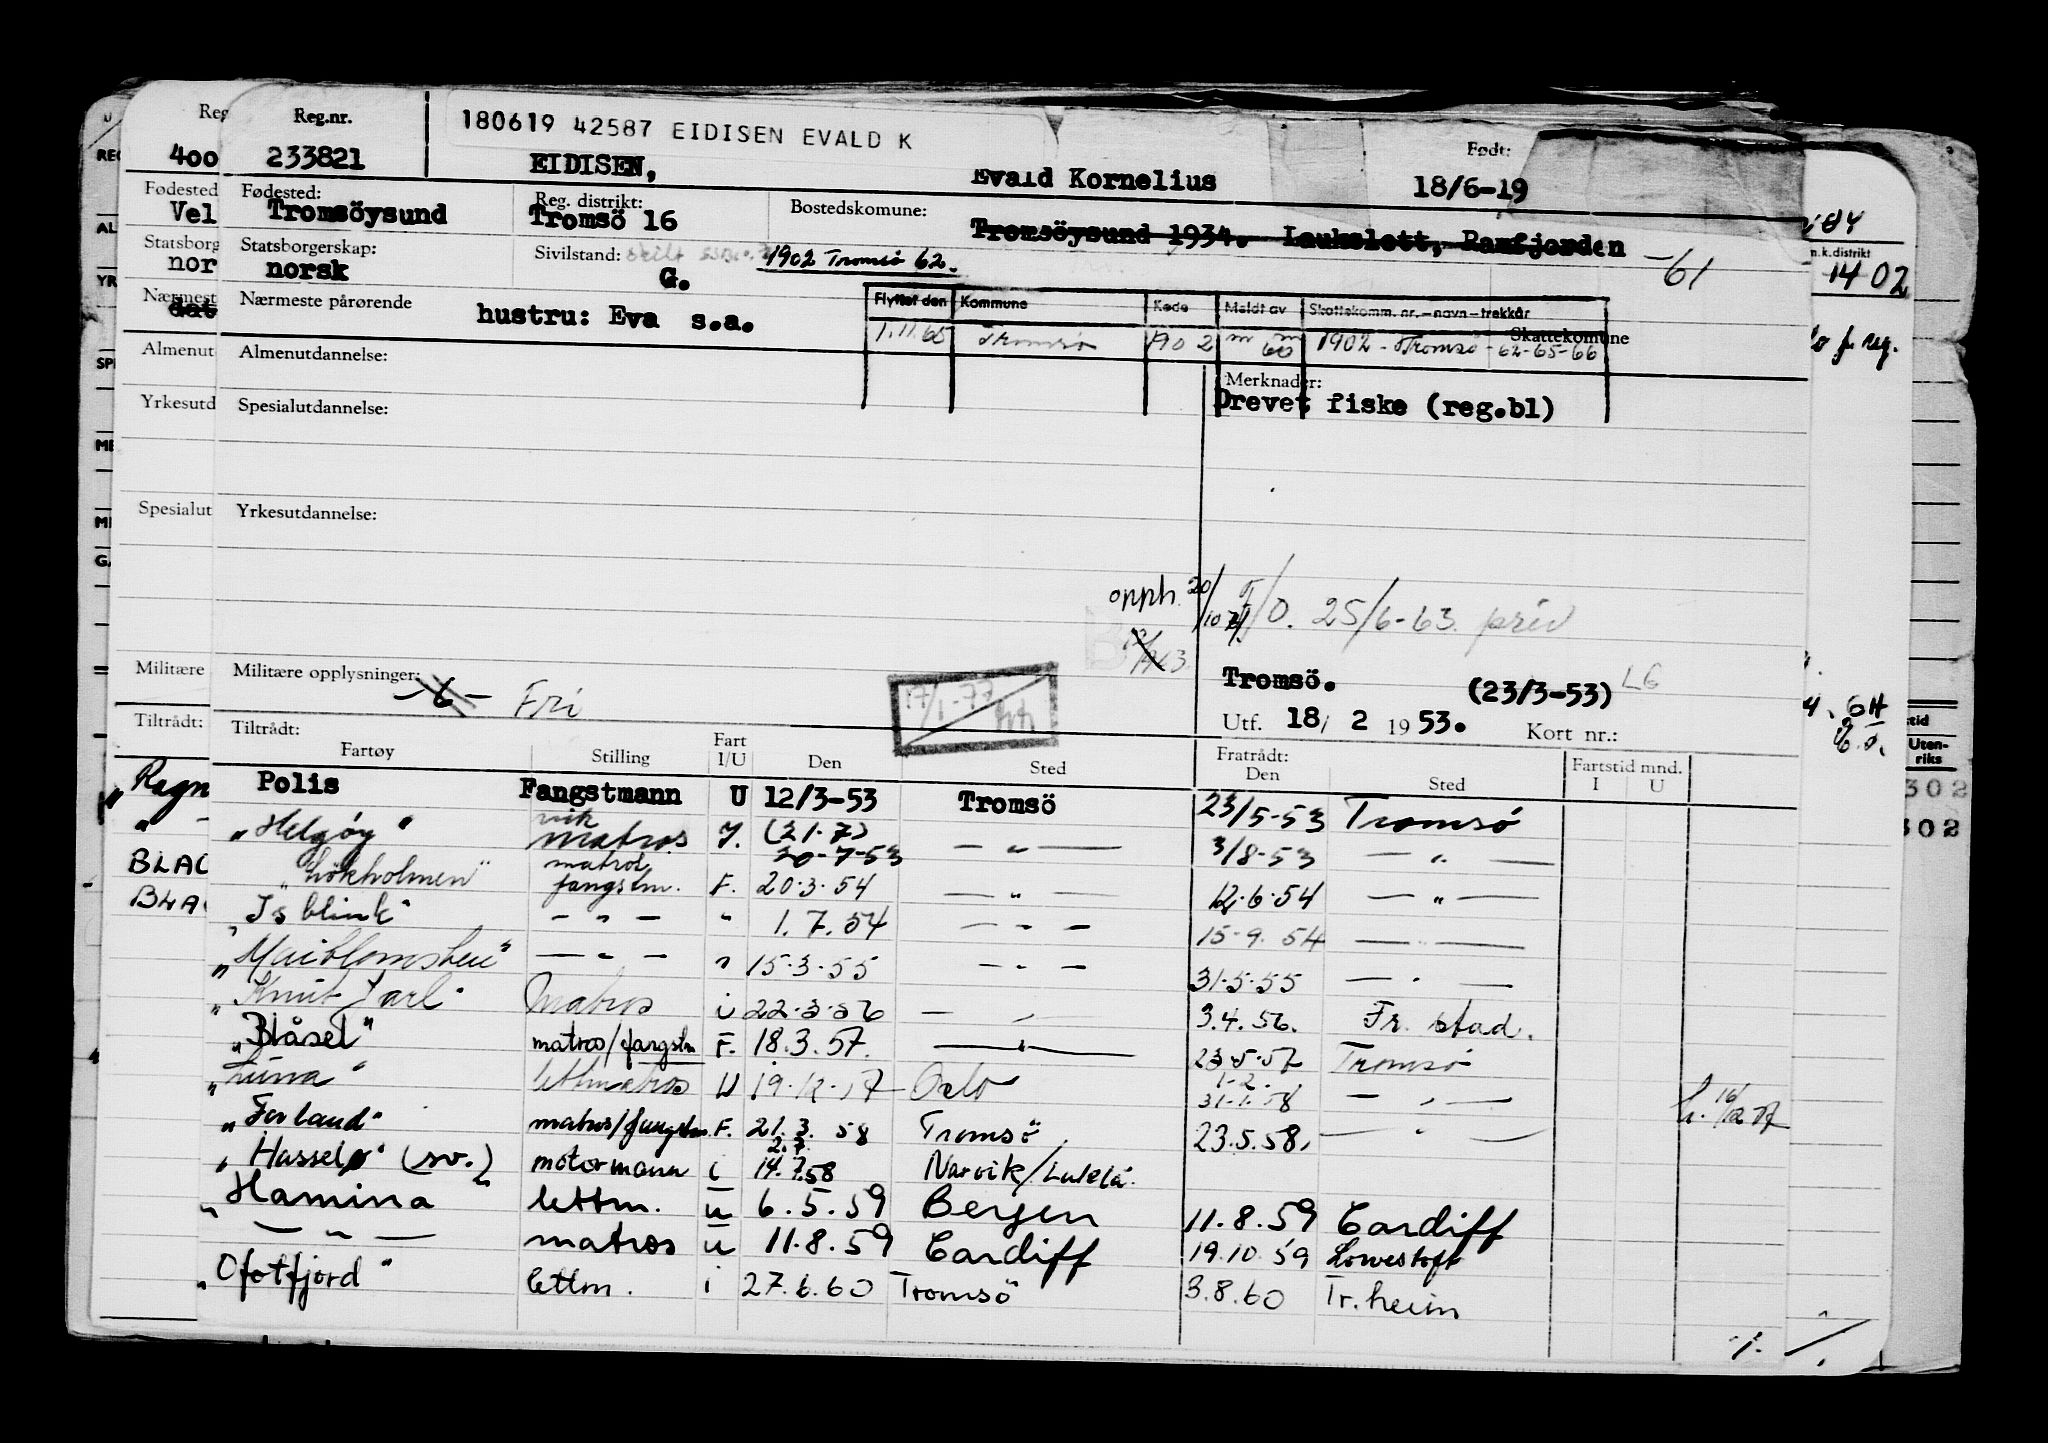 Reg.nr.
233821
180619 42587 EIDISEN EVALD K
EIDISEN, Evald Kornelius
Født:
18/6-19
Fødested:
Tromsöysund
Reg. distrikt:
Tromsö 16
Bostedskomune:
Tromsöysund 1934. Laukslett, Ramfjorden -61
Statsborgerskap:
norsk
Sivilstand:
G.
1902 Tromsö 62.
Nærmeste pårørende
hustru: Eva s.a.
Flyttet den Kommune Kode Meldt av Skattekomm. nr. – navn – trekkår
1.11.65 Tromsö 1902 1902 - Tromsö - 62-65-66
Skattekomune
Almenutdannelse:
Merknader:
Drevet fiske (reg.bl)
Spesialutdannelse:
Yrkesutdannelse:
opph. 20/10
F/O. 25/6-63. priv
Militære opplysninger:
-6- Fri
17/1-77
Tromsö. (23/3-53) L6
Utf. 18/ 2 1953. Kort nr.:
Tiltrådt:
Fartøy Stilling Fart I/U Den Sted Fratrådt: Den Sted Fartstid mnd. I U
Polis Fangstmann U 12/3-53 Tromsö 23/5-53 Tromsö
"Helgöy" matros I. (21.7) 20-7-53 — " — 3/8-53 — " —
matros
fangstm. F. 20.3.54 — " — 12.6.54 — " —
"Isblink" — " — " 1.7.54 — " — 15-9.54 — " —
"Maiblomsten" — " — " 15.3.55 — " — 31.5.55 — " —
"Knut Jarl" Matros i 22.3.56 — " — 3.4.56. Fr. stad.
"Blåsel" matros/fangstm F. 18.3.57. — " — 23.5.57 Tromsö
"Luna" lettmatros U 19.12.57 Oslo 1.2. 31.1.58 — " —
"Forland" matros/fangstm. F. 21.3.58 Tromsö 23.5.58. — " —
"Hasselö" (sv.) motormann i 2.7. 14.7.58 Narvik/Luleå.
"Hamina lettm. u 6.5.59 Bergen 11.8.59 Cardiff
— " — matros u 11.8.59 Cardiff 19.10.59 Lowestoft
"Ofotfjord" lettm. i 27.6.60 Tromsö 3.8.60 Tr.heim